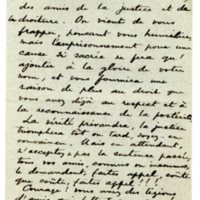 des amis de la justice et de
la droiture. On vient de vous
frapper, pensant vous humilier,
mais l'emprisonnement pour une
cause si sacrée ne fera qu'
ajouter à la gloire de votre
nom, et vous fournira une
raison de plus au droit que
vous avez déjà au respect et à
la reconnaissance de la postérité
La vérité prévaudra, la justice
triomphera tôt ou tard, soyez-en
convaincu. Mais en attendant,
n'acceptez pas la sentence passée,
tous vos amis, connus ou inconnus
le demandent, faites appel, coûte
que coûte, faites appel!!!
Courage! vous avez des légions